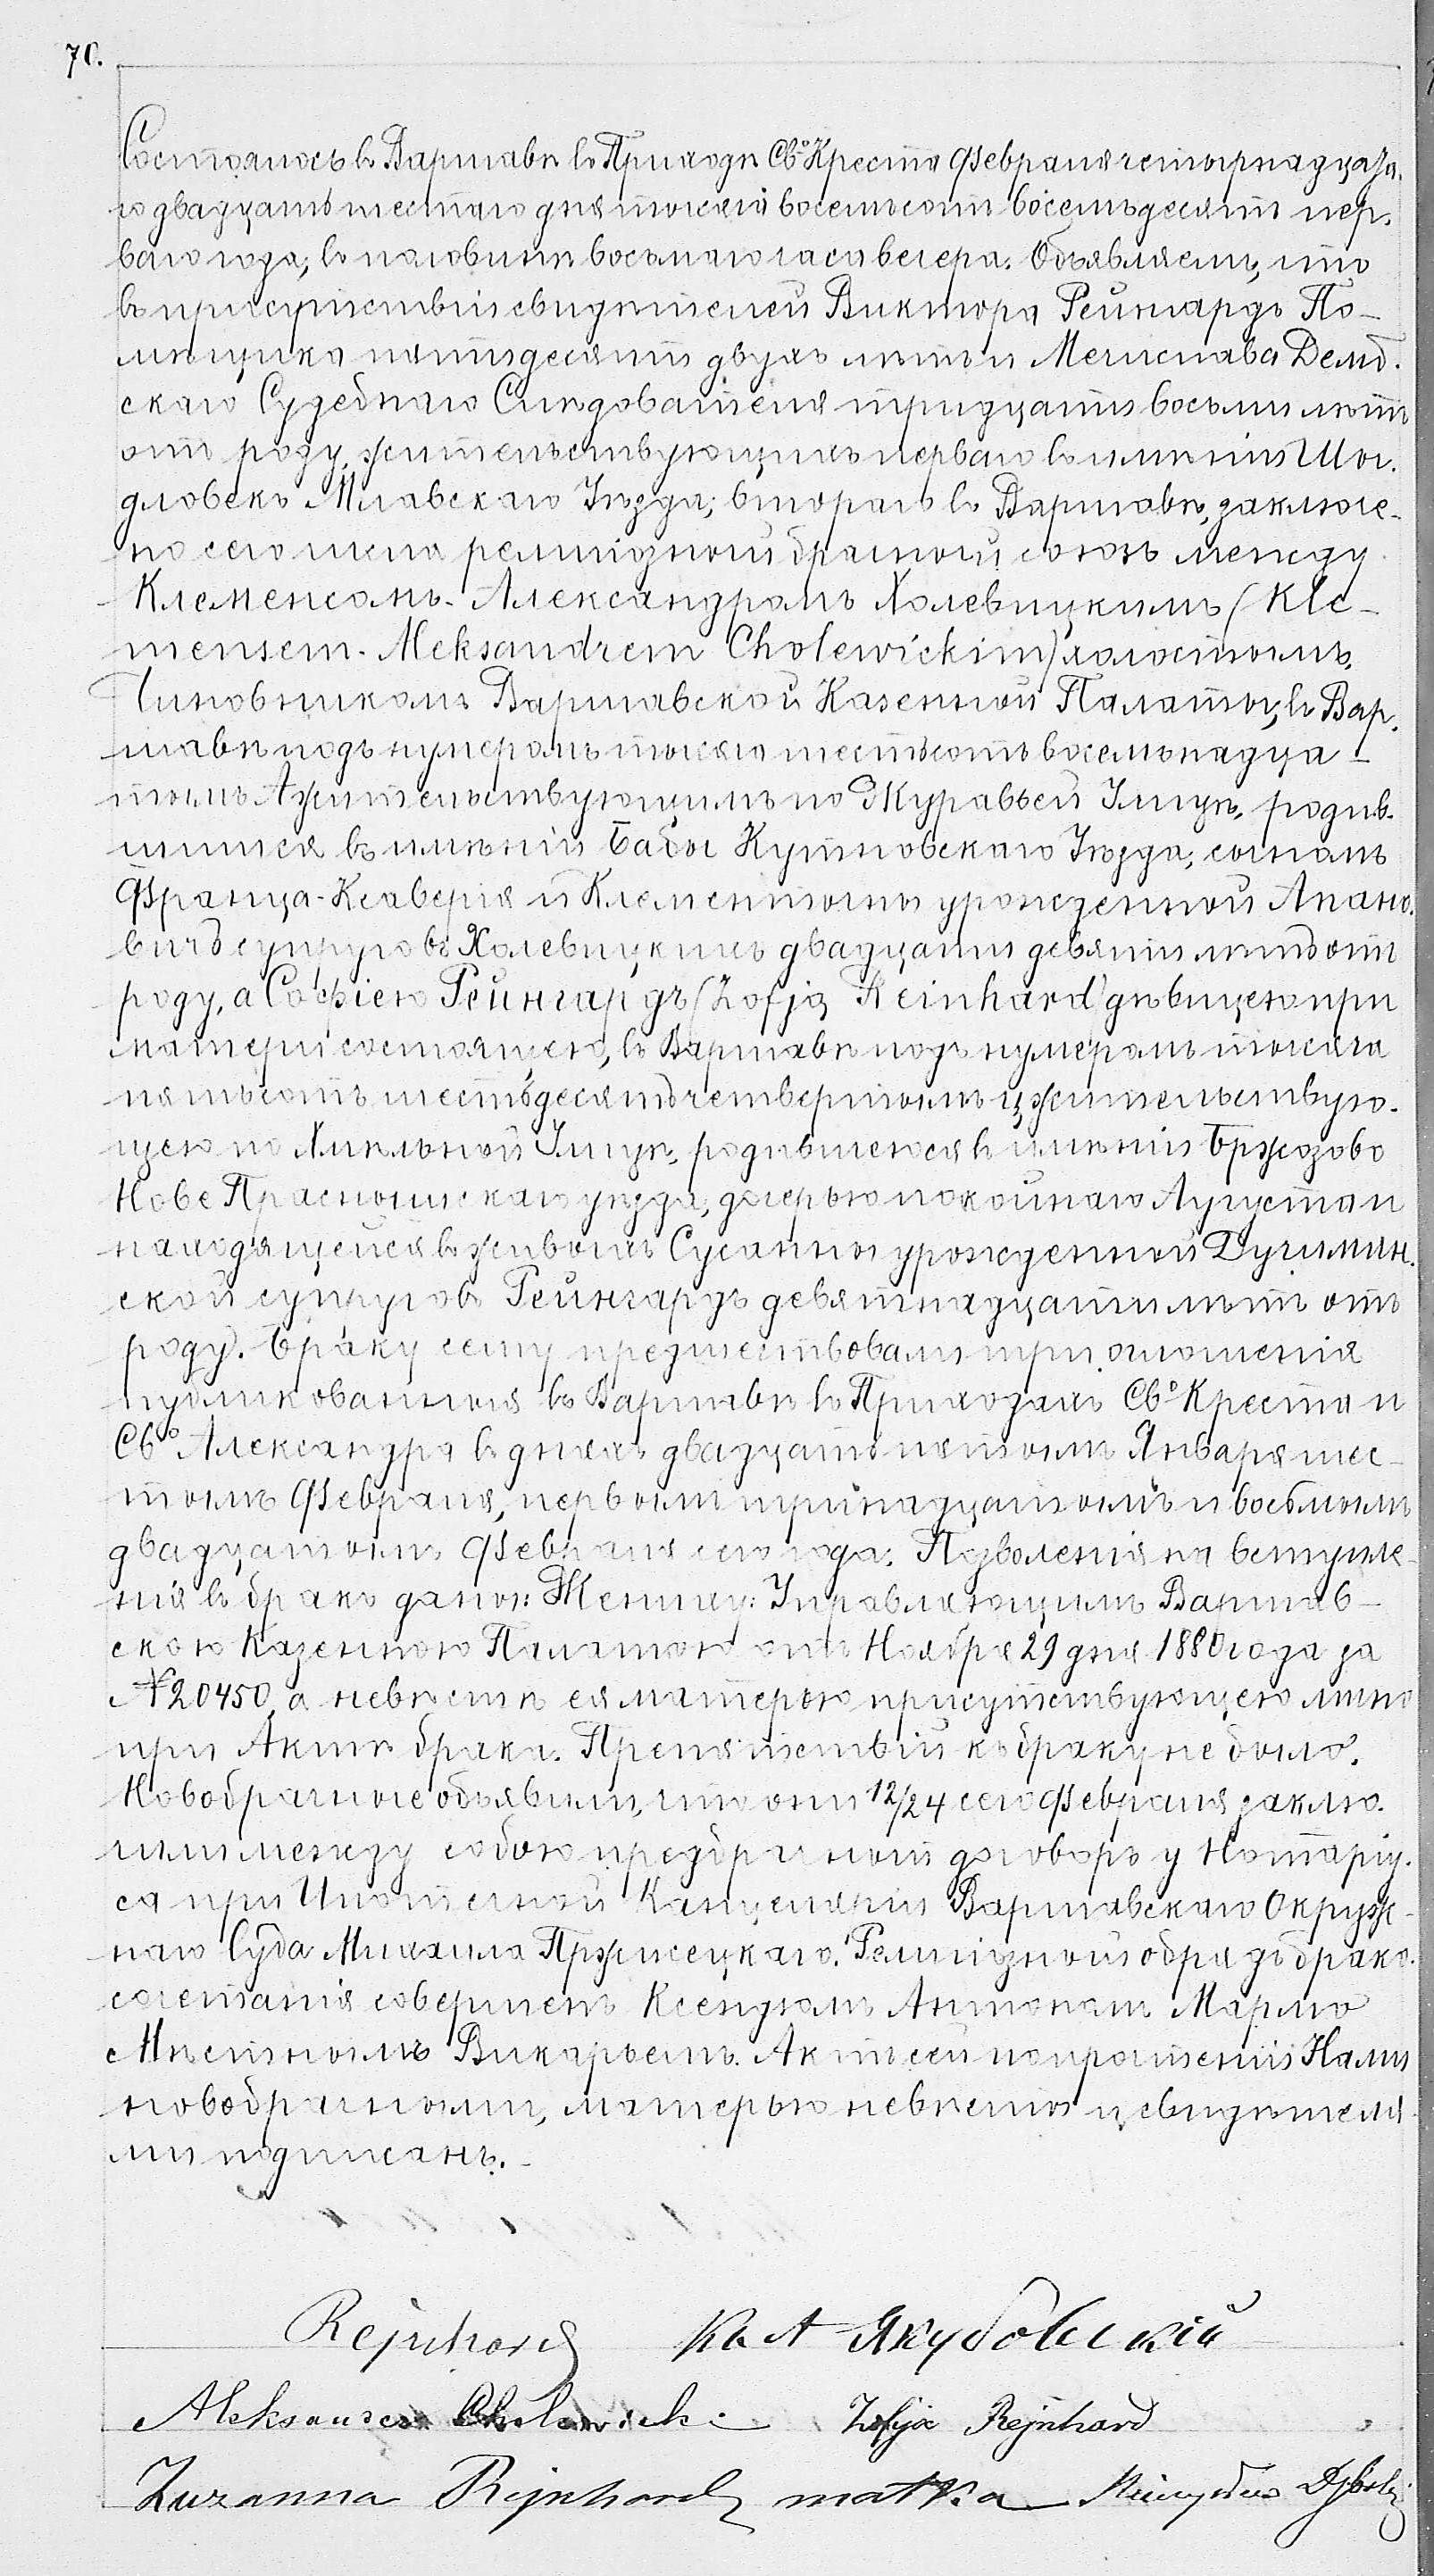 70.
Состоялось въ Варшавѣ въ Приходѣ Св.º Креста Февраля четырнадцата-
го двадцать шестаго дня тысяча восемьсотъ восемьдесятъ пер-
ваго года, въ половинѣ восьмаго часа вечера. Объявляемъ, что
въ присутствіи свидѣтелей Виктора Рейнгардъ По-
мѣщика пятидесяти двухъ лѣтъ и Мечислава Демб-
скаго Судебнаго Слѣдователя тридцати восьми лѣтъ
отъ роду, жительствующихъ перваго въ имѣніи Шы-
дловекъ Млавскаго Уѣзда, втораго въ Варшавѣ, заключе-
но сего числа религіозный брачный союзъ между
Клеменсомъ-Александромъ Холевицкимъ (Kle-
mensem-Aleksandrem Cholewickim) холостымъ,
Чиновникомъ Варшавской Казенной Палаты, въ Вар-
шавѣ подъ нумеромъ тысяча шестьсотъ восемьнадца-
тымъ А жительствующимъ по Журавьей Улицѣ, родив-
шимся въ имѣніи Бабы Кутновскаго Уѣзда, сыномъ
Франца-Ксаверія и Клементины урожденной Апано-
вичъ супруговъ Холевицкихъ двадцати девяти лѣтъ отъ
роду, а Софіею Рейнгардъ (Zofją Reinhard) дѣвицею при
матери состоящею, въ Варшавѣ подъ нумеромъ тысяча
пятьсотъ шестьдесятъ четвертымъ ц жительствую-
щею по Хмѣльной Улицѣ, родившеюся въ имѣніи Бржозово
Нове Праснышскаго уѣзда, дочерью покойнаго Августа и
находящейся въ живыхъ Сусанны урожденной Дучимин-
ской супруговъ Рейнгардъ девятнадцати лѣтъ отъ
роду. Браку сему предшествовали три оглошенія
публикованныя въ Варшавѣ въ Приходахъ Св.º Креста и
Св.º Александра въ дняхъ двадцать пятомъ Января шес-
томъ Февраля, первомъ тринадцатомъ и восьмомъ
двадцатомъ Февраля сего года. Позволенія на вступле-
нія въ бракъ даны: Жениху: Управляющимъ Варшав-
скою Казенною Палатою отъ Ноября 29 дня 1880 года за
№ 20450, а невѣстѣ ея матерью присутствующею лично
при Актѣ брака. Препятствій къ браку не было.
Новобрачные объявили, что они 12/24 сего Февраля заклю-
чили между собою предбрачный договоръ у Нотаріу-
са при Ипотечной Канцеляріи Варшавскаго Окруж-
наго Суда Михаила Пржисецкаго. Религіозный обрядъ брако-
сочетанія совершенъ Ксендзомъ Антономъ Мармо
Мѣстнымъ Викарьемъ. Актъ сей по прочтеніи Нами
новобрачными, матерью невѣсты и свидѣтеля-
ми подписанъ.
Rejnhard Кс. А Якубовскій
Aleksander Cholewicki Zofija Rejnhard
Zuzanna Rejnhard matka